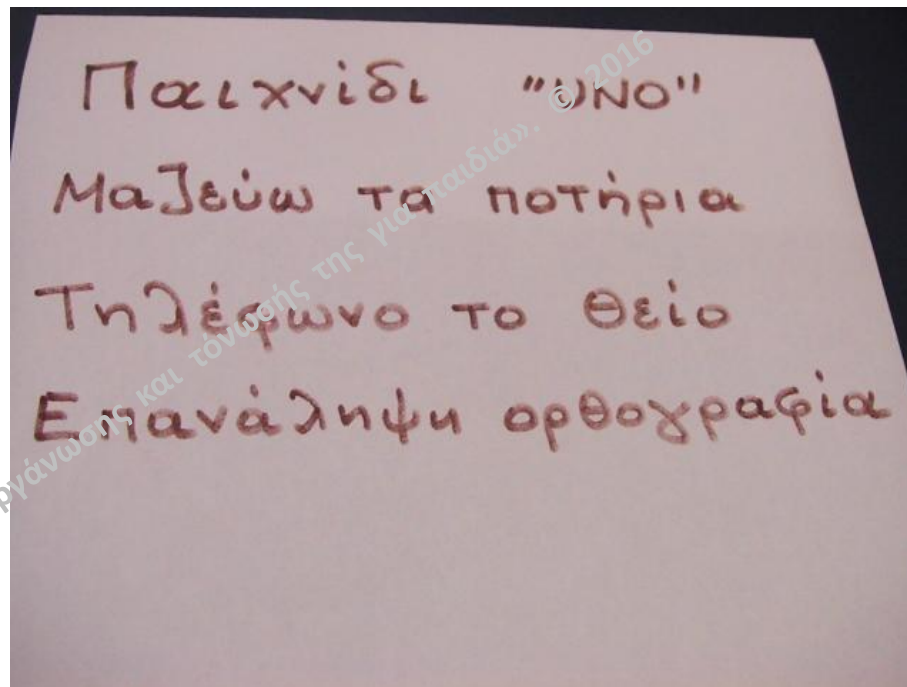 Παιχνίδι "UNO"
Μαζεύω τα ποτήρια
Τηλέφωνο το θείο
Επανάληψη ορθογραφία
ργάνωσης και τόνωσής της για παιδιά», © 2016